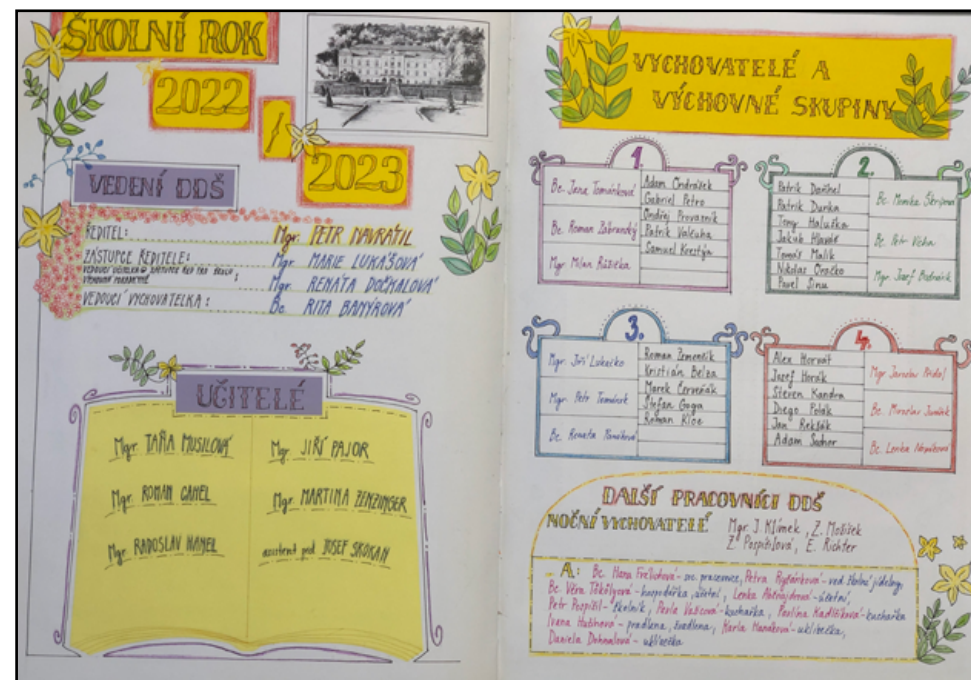 ŠKOLNÍ ROK
2022
/
2023
VEDENÍ DDŠ
ŘEDITEL: Mgr. PETR NAVRÁTIL
ZÁSTUPCE ŘEDITELE: Mgr. MARIE LUKÁŠOVÁ
Mgr. RENATA DOČKALOVÁ
VEDOUCÍ VYCHOVATELKA: Bc. RITA BANÝROVÁ
UČITELÉ
Mgr. TÁŇA MUSILOVÁ
Mgr. ROMAN CANEL
Mgr. RADOSLAV HANEL
Mgr. JIŘÍ PAJOR
Mgr. MARTINA ZENZINGER
asistent ped. JOSEF SKOKAN
VYCHOVATELÉ A
VÝCHOVNÉ SKUPINY
1.
Bc. Jana Tománková
Bc. Roman Zábranský
Mgr. Milan Růžička
Adam Ondrášek
Gabriel Petro
Ondřej Provazník
Patrik Valcuha
Samuel Krestýn
2.
Patrik Daňhel
Patrik Dunka
Tony Haluška
Jakub Hlaváč
Tomáš Malík
Nikolas Oračko
Pavel Sinu
Bc. Monika
Bc. Petr Vícha
Mgr. Josef Bednárik
3.
Mgr. Jiří Lukečko
Mgr. Petr Tománek
Bc. Renata
Roman Zemenčík
Kristián Belza
Marek Červeňák
Štefan Goga
Roman
4.
Alex Horvát
Josef Horák
Steven Kandra
Diego Polák
Jan Rekšák
Adam
Mgr. Jaroslav
Bc. Miroslav
Bc. Lenka
DALŠÍ PRACOVNÍCI DDŠ
NOČNÍ VYCHOVATELÉ Mgr. J. Klimek, Z. Mošíšek
Z. Pospíšilová, E. Richter
A: Bc. Hana - soc. pracovnice, Petra - ved. školní jídelny,
Bc. Věra Tökölyová - hospodářka, účetní, Lenka - účetní,
Petr Pospíšil - školník, Pavla Vašicová - kuchařka, Pavlína Kadlčíková - kuchařka
Ivana - pradlena, švadlena, Karla Hanáková - uklízečka,
Daniela Dohnalová - uklízečka